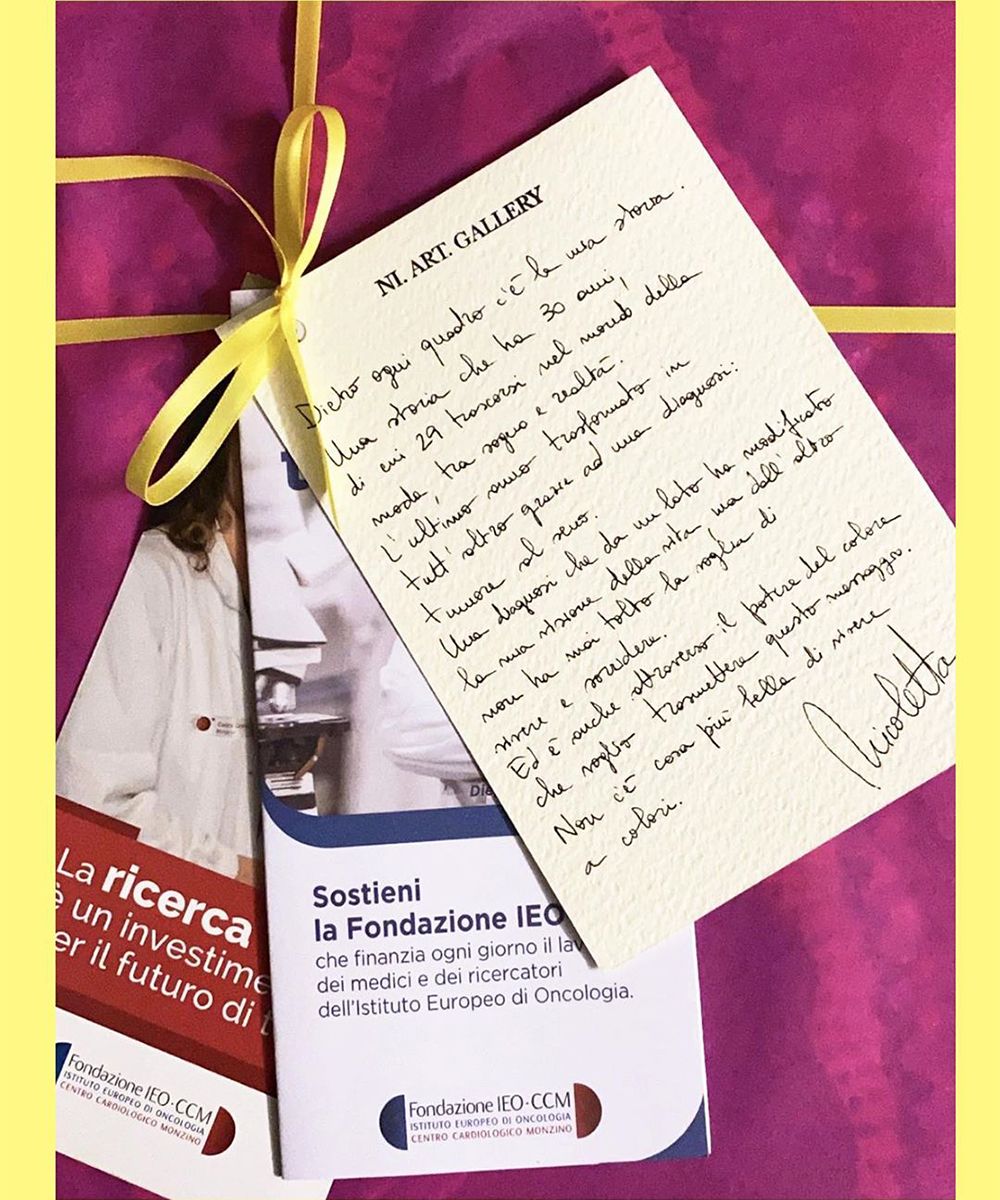 NI. ART. GALLERY
Dietro ogni quadro c'è la mia storia.
Una storia che ha 30 anni,
di cui 29 trascorsi nel mondo della
moda, tra sogno e realtà.
L'ultimo anno trasformato in
tutt'altro grazie ad una diagnosi:
tumore al seno.
Una diagnosi che da un lato ha modificato
la mia visione della vita, ma dall'altro
non ha mai tolto la voglia di
vivere e sorridere.
Ed è anche attraverso il potere del colore
che voglio trasmettere questo messaggio.
Non c'è cosa più bella di vivere
a colori.
Nicoletta
La ricerca
è un investime
er il futuro di t
Fondazione IEO·CCM
ISTITUTO EUROPEO DI ONCOLOGIA
CENTRO CARDIOLOGICO MONZINO
Sostieni
la Fondazione IEO
che finanzia ogni giorno il lav
dei medici e dei ricercatori
dell'Istituto Europeo di Oncologia.
Fondazione IEO·CCM
ISTITUTO EUROPEO DI ONCOLOGIA
CENTRO CARDIOLOGICO MONZINO